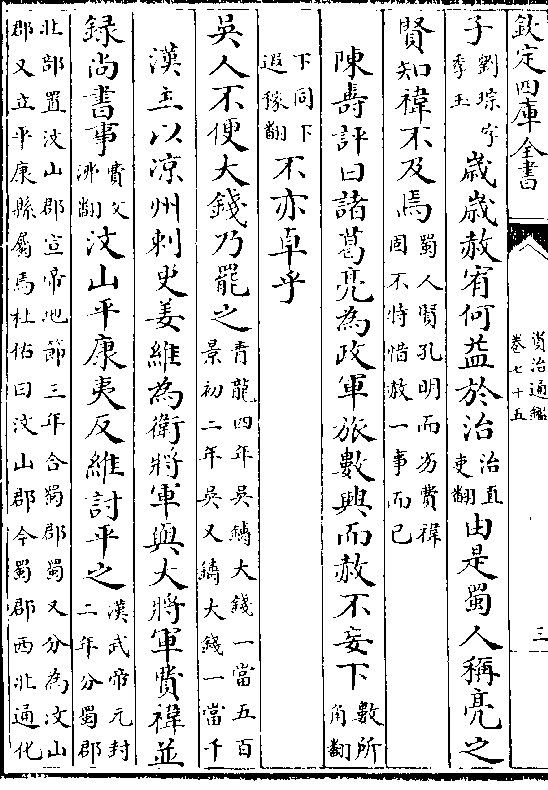 欽定四庫全書
資治通鑑
卷七十五
三
子劉琮字季玉歲歲赦宥何益於治治直吏翻由是蜀人稱亮之
賢知禕不及焉蜀人賢孔明而劣費禕固不特惜赦一事而已
陳壽評曰諸葛亮為政軍旅數興而赦不妄下數所角翻
下同下遐稼翻不亦卓乎
吳人不便大錢乃罷之青龍四年吳鑄大錢一當五百景初二年吳又鑄大錢一當千
漢主以涼州刺史姜維為衛將軍與大將軍費禕並
録尚書事費父沸翻汶山平康夷反維討平之漢武帝元封二年分蜀郡
北部置汶山郡宣帝地節三年合蜀郡蜀又分為汶山郡又立平康縣屬焉杜佑曰汶山郡今蜀郡西北通化